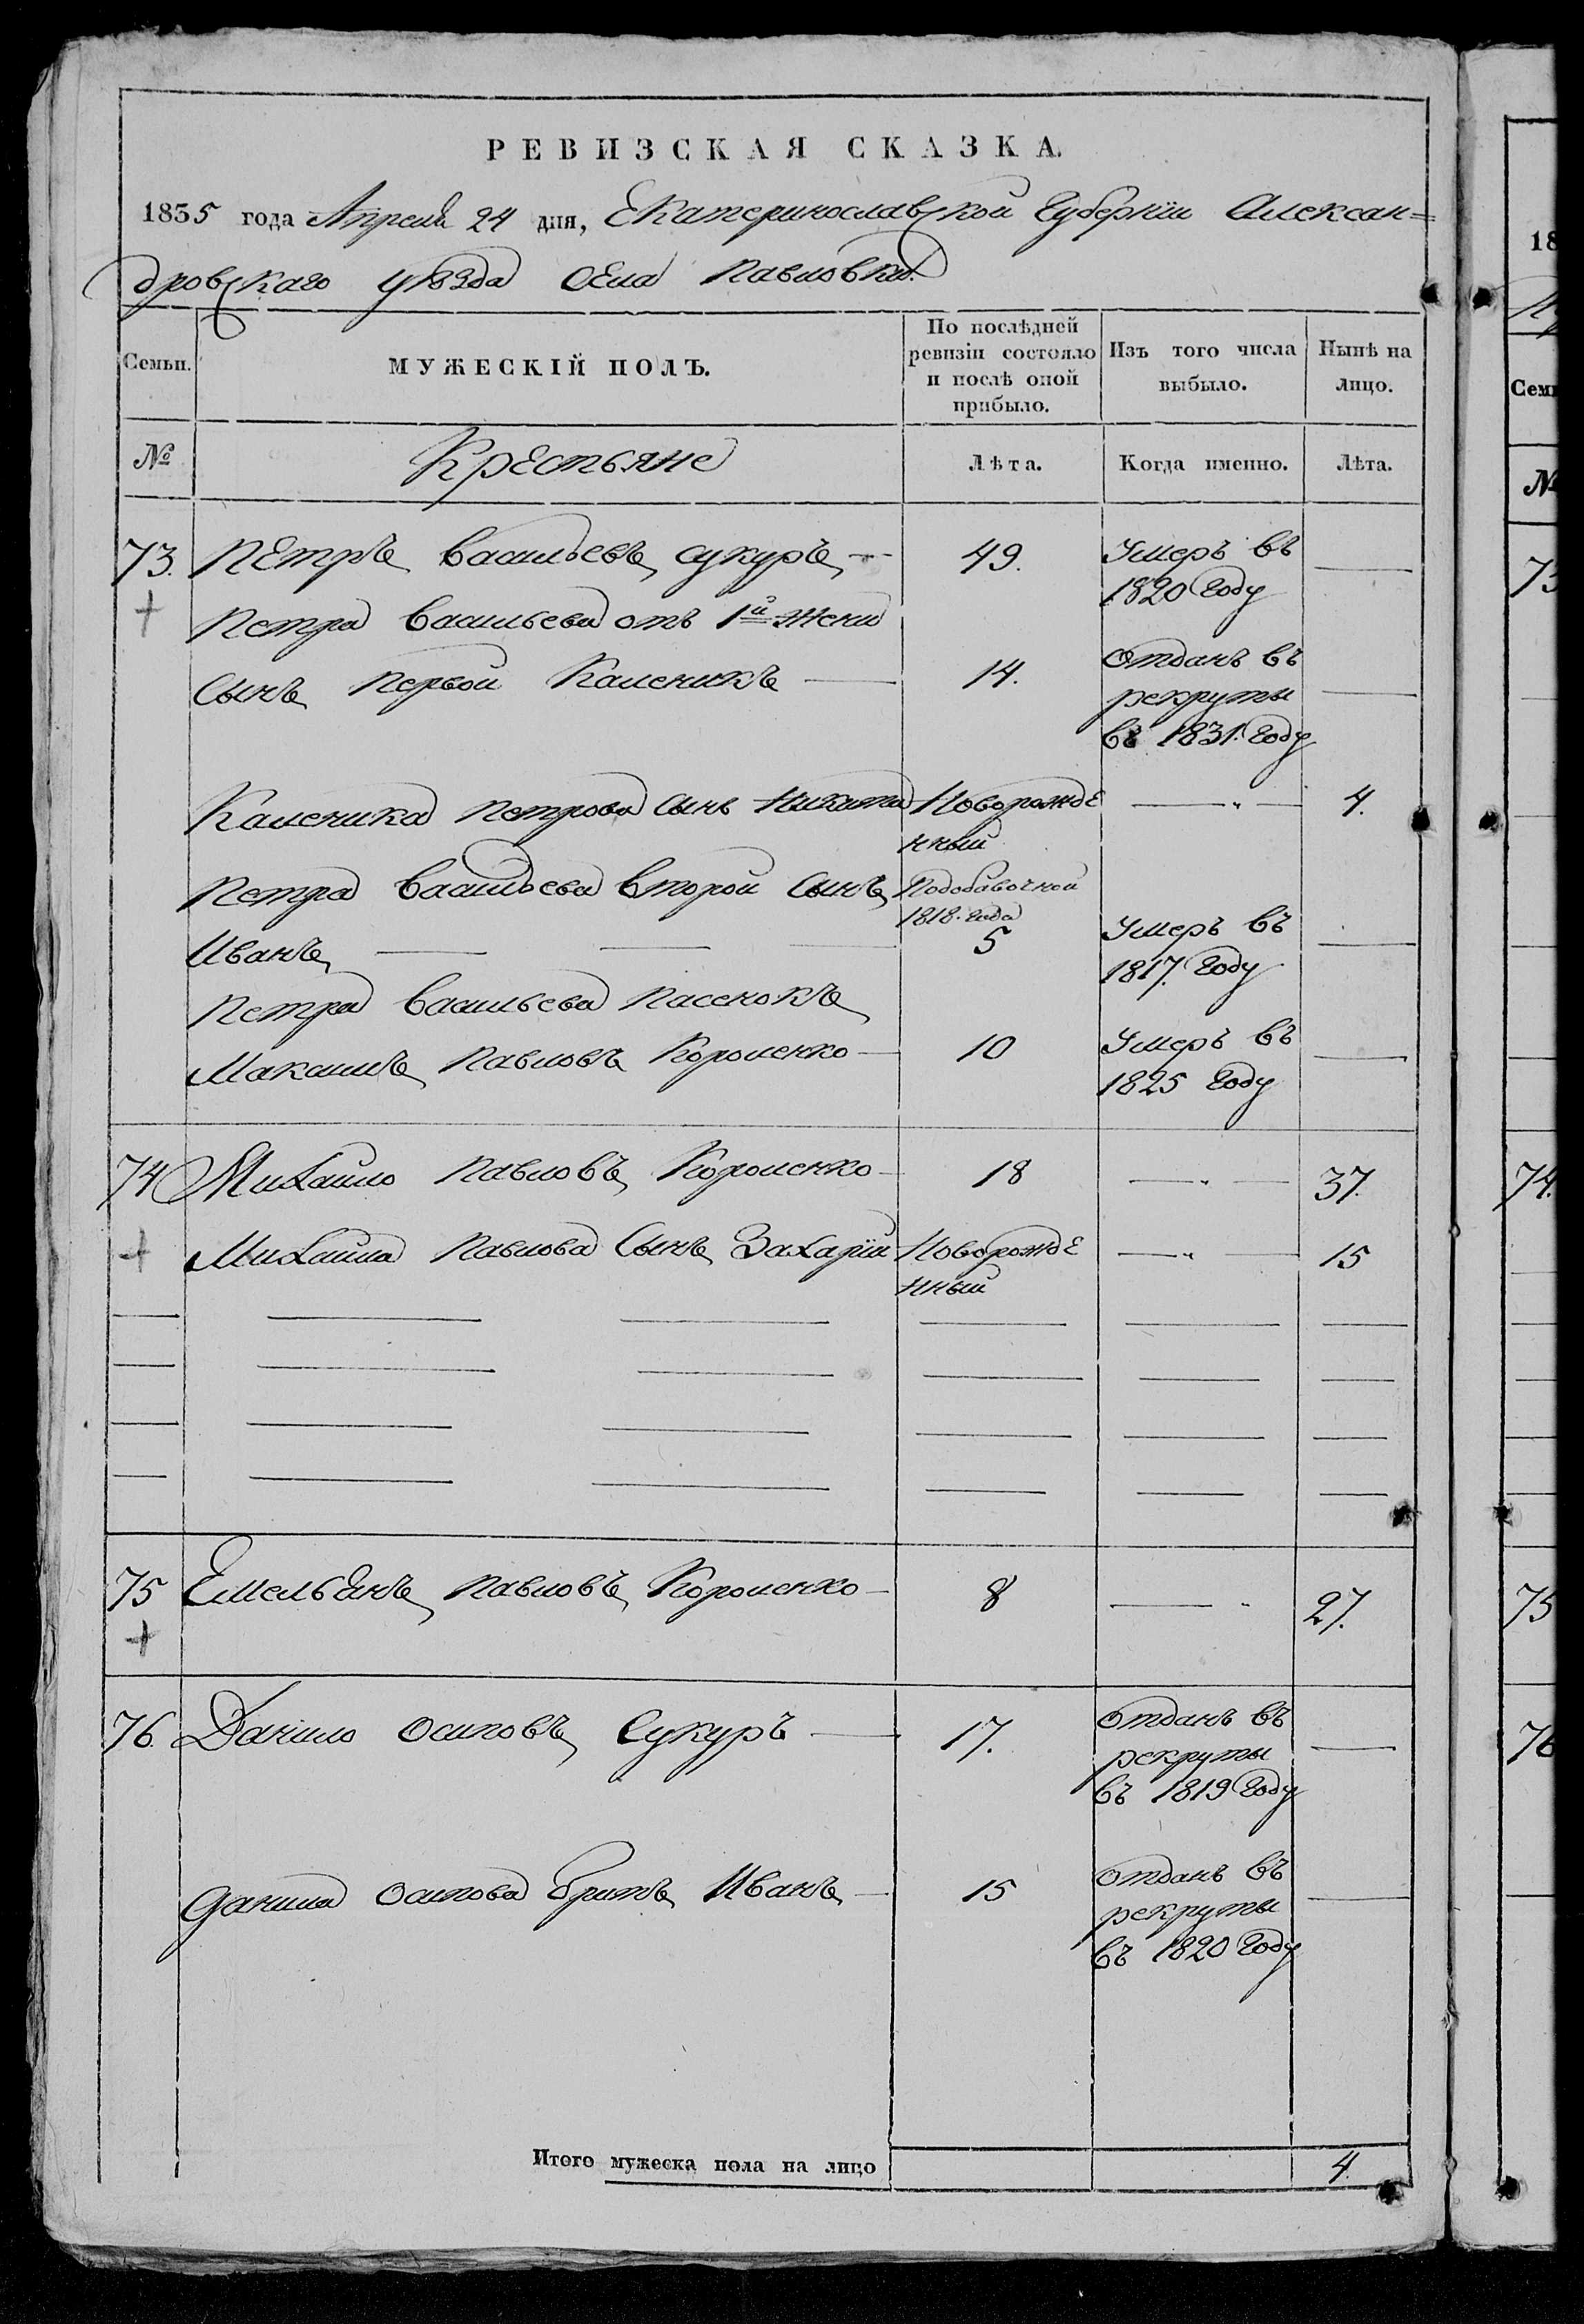 РЕВИЗСКАЯ СКАЗКА.
1835 года Апреля 24 дня, Екатеринославской Губернiи Алексан=
дровскаго уѣзда Села Павловки.
Семьи. МУЖЕСКIЙ ПОЛЪ. По послѣдней ревизiи состояло и послѣ оной прибыло. Изъ того числа выбыло. Нынѣ на лицо.
№ Крестьяне Лѣта. Когда именно. Лѣта.
73. Петръ Васильевъ Сукуръ — 49. Умеръ въ —
1820 году
Петра Васильева отъ 1й жены
Сынъ первой Каленикъ — 14. Отданъ въ —
рекруты
въ 1831. году
Каленика Петрова сынъ Никита Новорожде — 4.
нный
Петра Васильева второй сынъ Подобавочной
1818. года
Иванъ — 5 Умеръ въ —
1817. году
Петра Васильева пасенокъ
Макаимъ Павловъ Короленко — 10 Умеръ въ —
1825 году
74 Михайло Павловъ Короленко — 18 — 37.
Михайла Павлова Сынъ Захарiй Новорожде — 15
нный
75 Емельянъ Павловъ Короленко — 8 — 27.
76. Данило Осиповъ Сукуръ — 17. Отданъ въ —
рекруты
въ 1819 году
Данила Осипова братъ Иванъ — 15 Отданъ въ —
рекруты
въ 1820 году
Итого мужеска пола на лицо 4.
18
Семь
№
73
74.
75
76